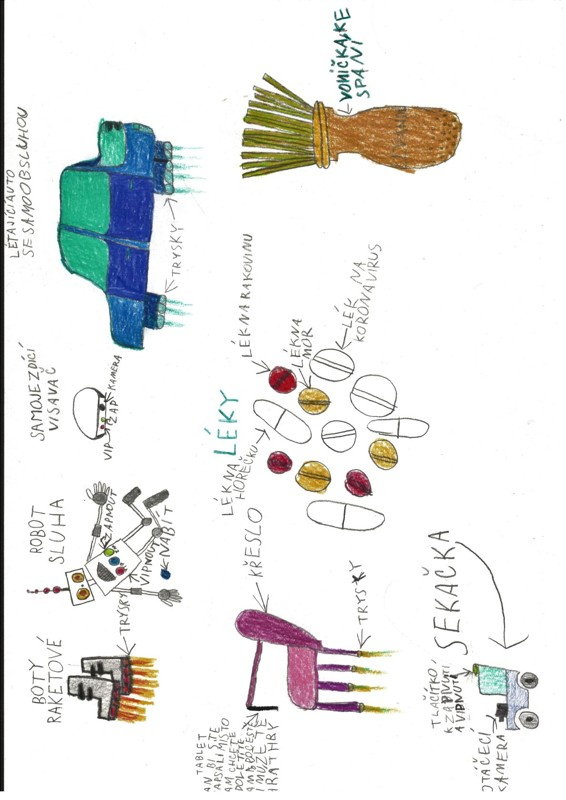 LÉTAJÍCÍ AUTO
SE SAMOOBSLUHOU
TRYSKY
VONIČKA KE
SPANÍ
SAMOJEZDÍCÍ
VISAVAČ
KAMERA
ZAP
VIP
ROBOT
SLUHA
ZAPNOUT
VIPNOUT
NABÍT
TRYSKY
BOTY
RAKETOVÉ
TRYSKY
LÉKY
LÉK NA RAKOVINU
LÉK NA
MOR
LÉK NA
KORONAVIRUS
LÉK NA
HOREČKU
KŘESLO
TRYSKY
TABLET
BI STE
MÍSTO
AM CHCETE
DOLETĚT
MUŽETE
HRÁT HRY
SEKAČKA
TLAČÍTKO
K ZAPNUTÍ
A VIPNUTÍ
OTÁČECÍ
KAMERA